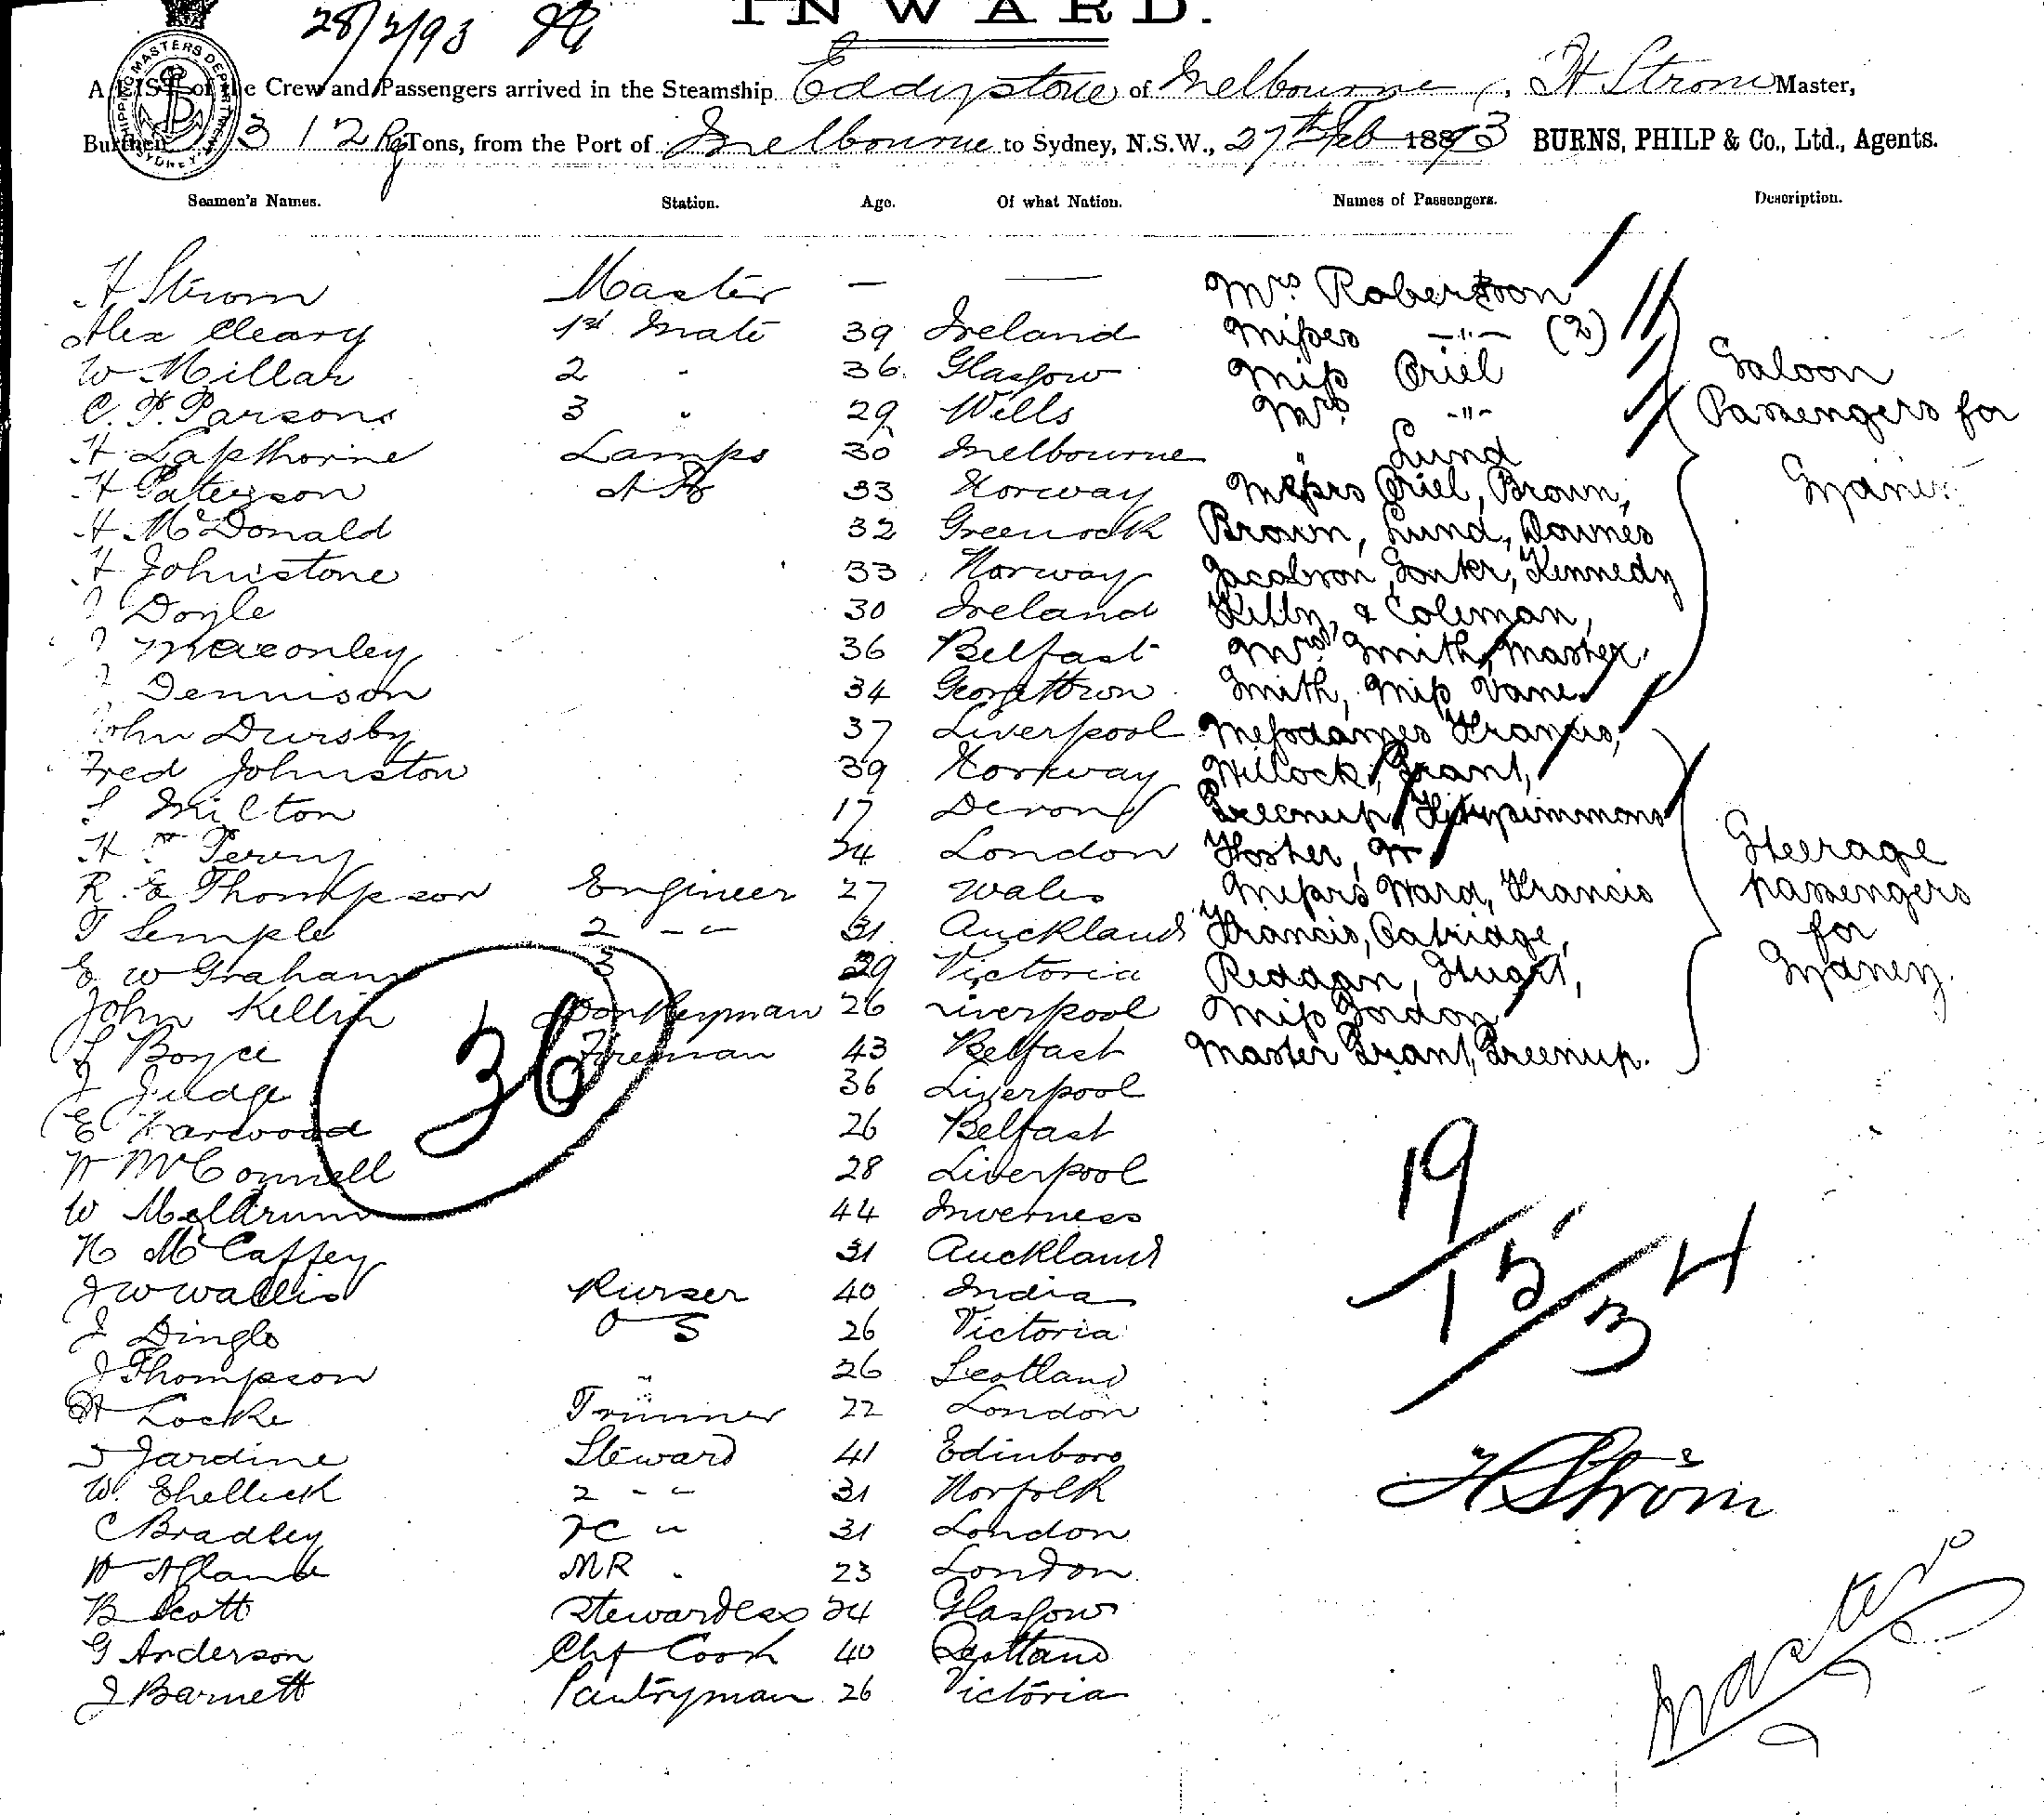 28/2/93
INWARD.
SHIPPING MASTERS DEPARTMENT SYDNEY
A LIST of the Crew and Passengers arrived in the Steamship Eddystone of Melbourne, H Strom Master,
Burthen 312 Rg Tons, from the Port of Melbourne to Sydney, N.S.W., 27th Feb 1893 BURNS, PHILP & Co., Ltd., Agents.
Seamen's Names. Station. Age. Of what Nation. Names of Passengers. Description.
H Strom Master — — Mrs Robertson
Alex Cleary 1st Mate 39 Ireland Misses -"- (2)
W Millar 2 " 36 Glasgow Miss Oriel Saloon
C. F. Parsons 3 " 29 Wells Mrs -"- Passengers for
H Lapthorne Lamps 30 Melbourne " Lund
H Paterson A B 33 Norway Messrs Oriel, Brown, Sydney
H McDonald 32 Greenock Brown, Lund, Downes
H Johnstone 33 Norway Jacobson, Kennedy
Doyle 30 Ireland Kelly, & Coleman,
36 Belfast Mrs Smith, Master
Dennison 34 Georgetown Smith, Miss Vane
John Dursby 37 Liverpool Mesdames Francis,
Fred Johnston 39 Norway Willock, Grant,
S Milton 17 Devon Greenup, Fitzsimmons
H Perry 24 London Foster,
R. E Thompson Engineer 27 Wales Messrs Ward, Francis Steerage
T Semple 2 -"- 31 Auckland Francis, Oatridge, passengers
E W Graham 3 29 Victoria Reddan, Stuart, for
John Kellin Donkeyman 26 Liverpool Miss Gordon Sydney.
S Boyce Fireman 43 Belfast Master Grant, Greenup.
J Judge 36 Liverpool
E Harwood 26 Belfast
36
W McConnell 28 Liverpool
W Meldrum 44 Inverness
H McCaffey 31 Auckland
19/15/34
J W Wallis Purser 40 India
J Dingle O S 26 Victoria
J Thompson " 26 Scotland
H Locke Trimmer 22 London
S Jardine Steward 41 Edinboro
W. Shellick 2 -"- 31 Norfolk
H Ström
C Bradley FC " 31 London
MR " 23 London
B Scott Stewardess 24 Glasgow
G Anderson Chf Cook 40 Scotland
J Barnett Pantryman 26 Victoria
Master